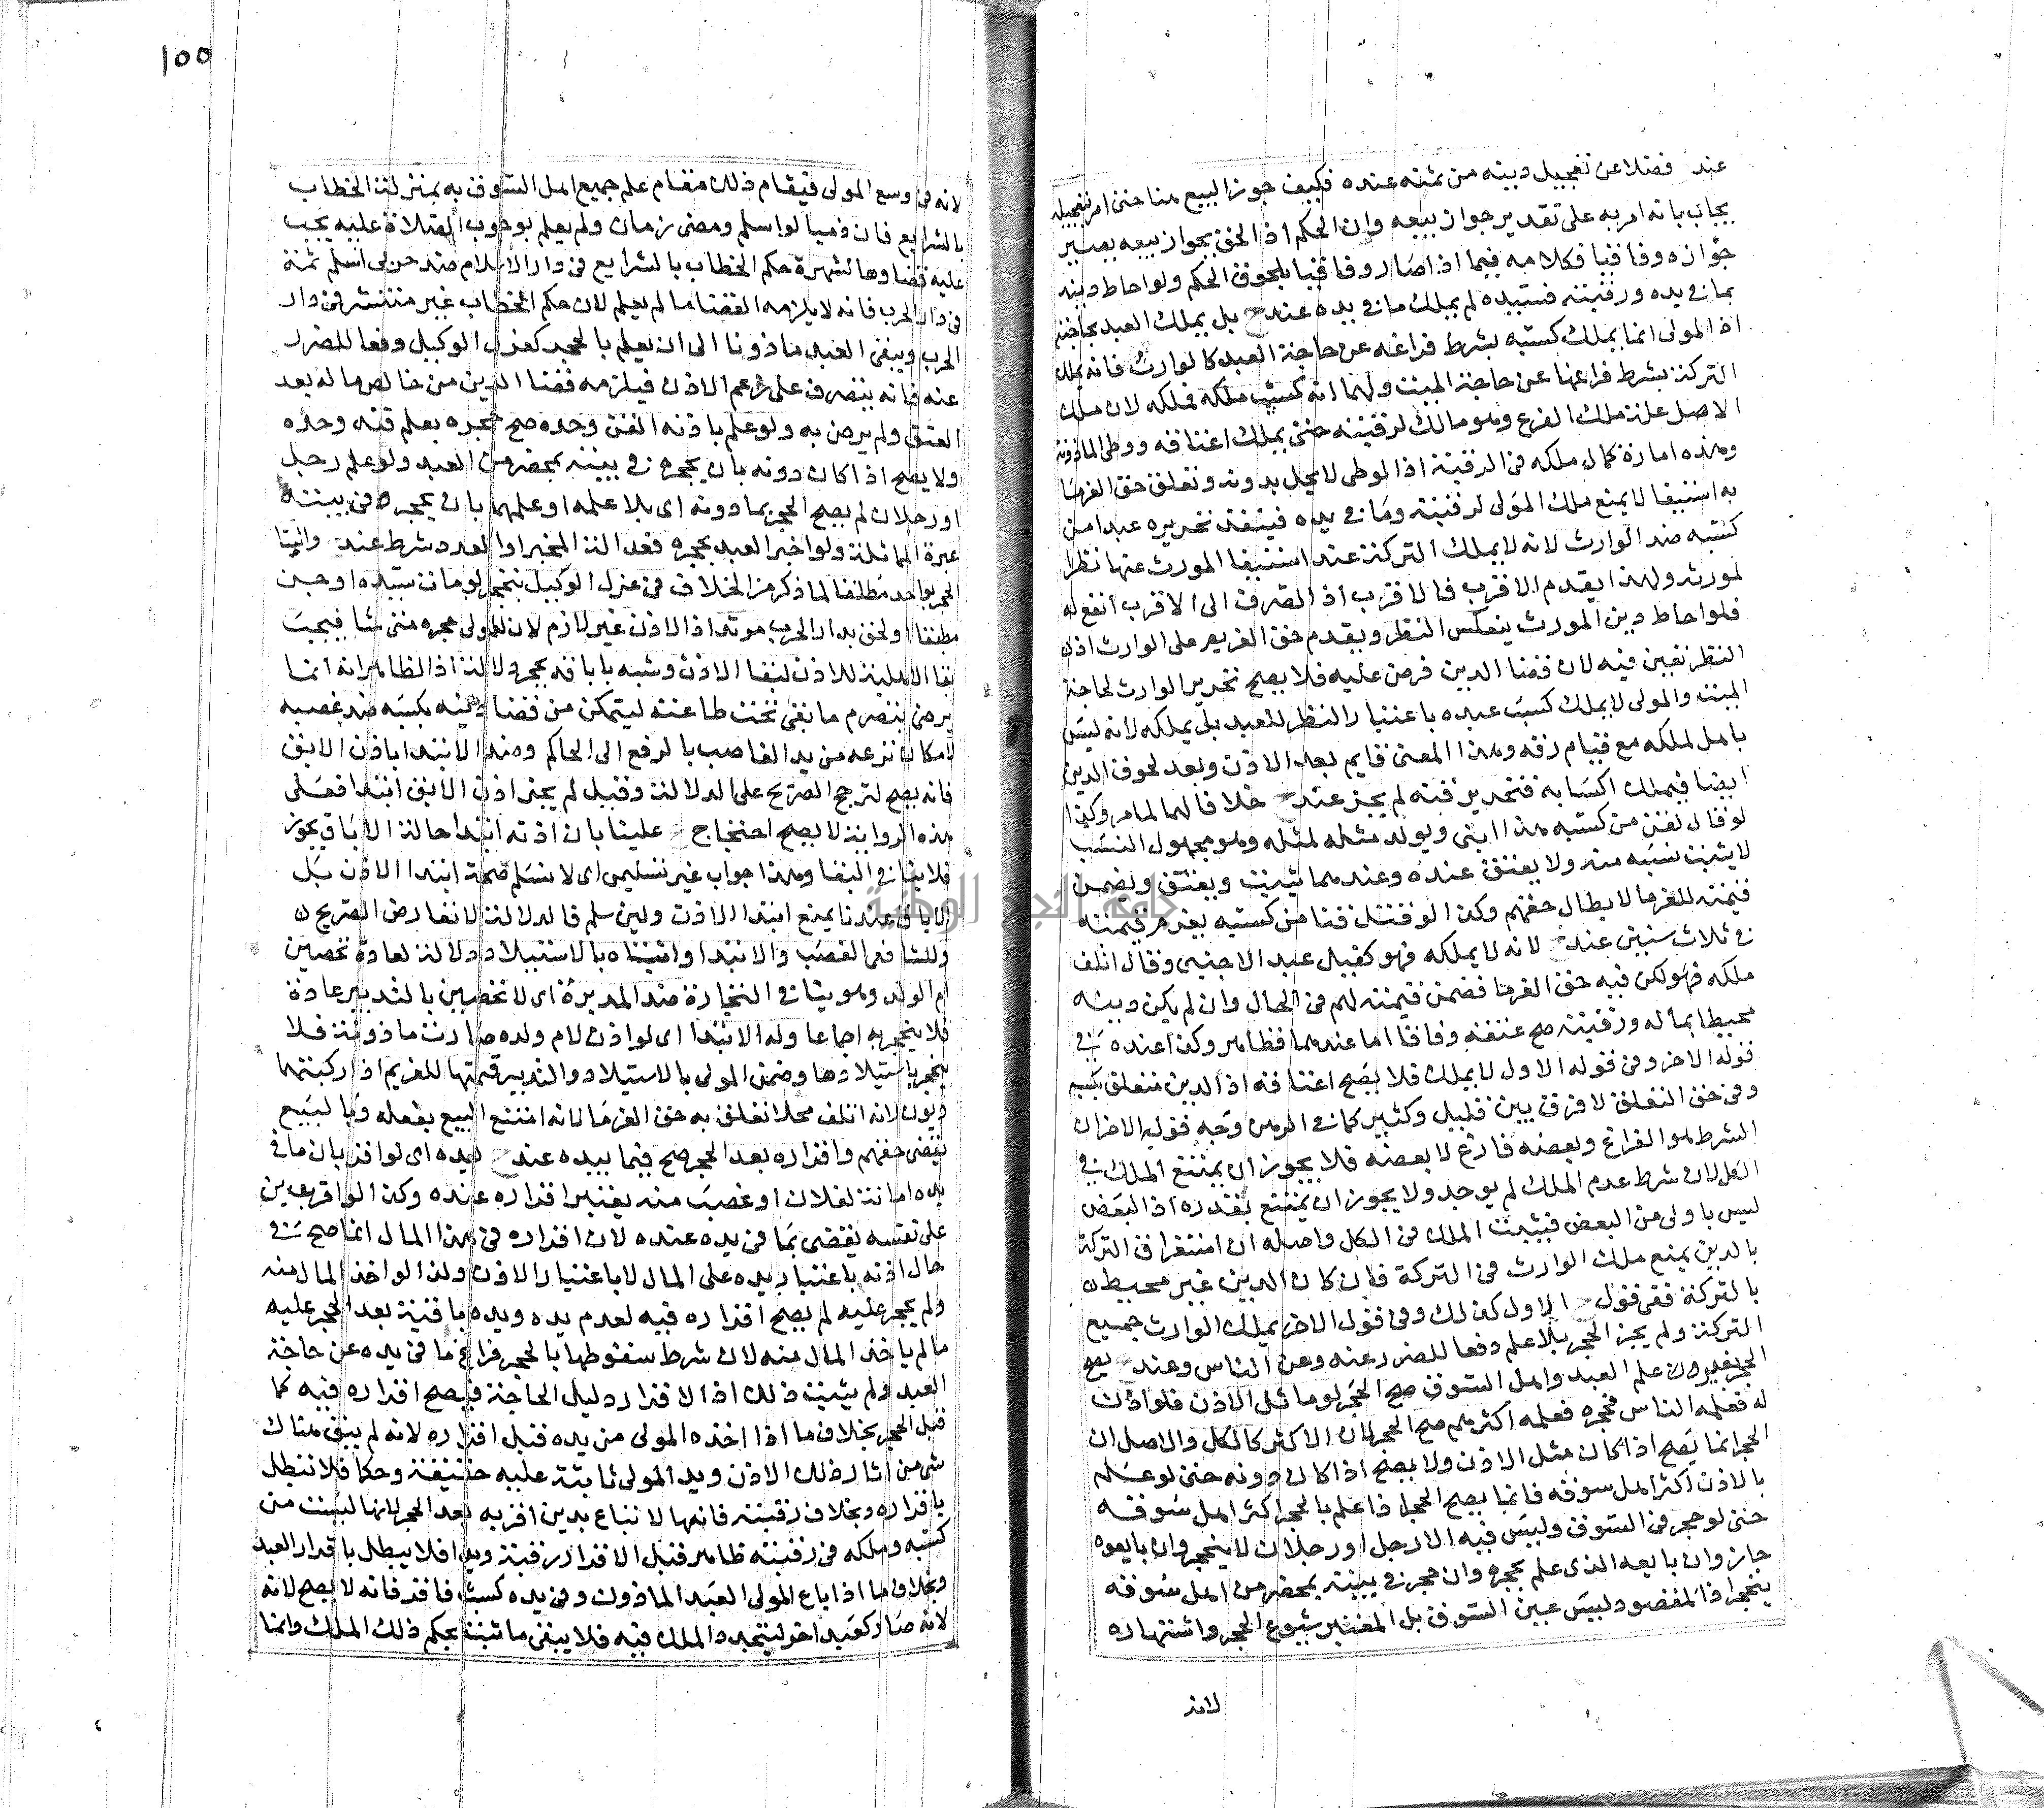 عند فضلا عن تعجيل دينه من ثمنه عنده فكيف جوز البيع هنا حتى امر بتعجيله
يجاب بانه امر به على تقدير جواز بيعه وان الحكم اذ الحق بجواز بيعه يصير
جوازه وفاقيا فكلامه فيما اذا صار وفاقيا بلحوق الحكم ولو احاط دينه
بما في يده ورقبته فسيده لم يملك ما في يده عند ح بل يملك العبد بحاجته
اذ المولى انما يملك كسبه بشرط فراغه عن حاجة العبد كالوارث فانه يملك
التركة بشرط فراغها عن حاجة الميت ولهما انه كسب ملكه فملكه لان ملك
الاصل علة ملك الفرع وهو مالك لرقبته حتى يملك اعتاقه ووطى الماذونة
وهذه امارة كمال ملكه في الرقبة اذ الوطى لا يحل بدونه وتعلق حق الغرما
به استيفا لا يمنع ملك المولى لرقبته وما في يده فينفذ تحريره عبدا من
كسبه ضد الوارث لانه لا يملك التركة عند استيفا المورث عنها نظرا
لمورثه ولهذا يقدم الاقرب فالاقرب اذ الصرف الى الاقرب انفع له
فلو احاط دين المورث ينعكس النظر ويقدم حق الغريم على الوارث اذ
النظر تعين فيه لان قضا الدين فرض عليه فلا يصح تحرير الوارث لحاجة
الميت والمولى لا يملك كسب عبده باعتبار النظر للعبد بل يملكه لانه ليس
باهل لملكه مع قيام رقه وهذا المعنى قايم بعد الاذن وبعد لحوق الدين
ايضا فيملك اكسابه فتحرير قنه لم يجز عند ح خلافا لهما لما مر وكذا
لو قال لقن من كسبه هذا ابنى ويولد مثله لمثله وهو مجهول النسب
لا يثبت نسبه منه ولا يعتق عنده وعندهما يثبت ويعتق ويضمن
قيمته للغرما لابطال حقهم وكذا لو قتل قنا من كسبه يغرم قيمته
في ثلاث سنين عند ح لانه لا يملكه فهو كقتل عبد الاجنبى وقالا اتلف
ملكه فهو لكن فيه حق الغرما فضمن قيمته لهم في الحال وان لم يكن دينه
محيطا بماله ورقبته صح عتقه وفاقا اما عندهما فظاهر وكذا عنده في
قوله الاخر وفى قوله الاول لا يملك فلا يصح اعتاقه اذ الدين متعلق بكسبه
وفى حق التعلق لا فرق بين قليل وكثير كما في الرهن وجه قوله الاخر ان
الشرط هو الفراغ وبعضه فارغ لا بعضه فلا يجوز ان يمتنع الملك في
الكل لان شرط عدم الملك لم يوجد ولا يجوز ان يمتنع بقدره اذ البعض
ليس باولى من البعض فيثبت الملك فى الكل واصله ان استغراق التركة
بالدين يمنع ملك الوارث فى التركة فان كان الدين غير محيط
بالتركة ففى قول ح الاول كذلك وفى قوله الاخر يملك الوارث جميع
التركة ولم يجز الحجر بلا علم دفعا للضرر عنه وعن الناس وعند يصح
الحجر بغير علم العبد واهل السوق صح الحجر لو ماثل الاذن فلو اذن
له فعلمه الناس فحجره فعلمه اكثرهم صح الحجر لان الاكثر كالكل والاصل ان
الحجر انما يصح اذا كان مثل الاذن ولا يصح اذا كان دونه حتى لو علم
بالاذن اكثر اهل سوقه فانما يصح الحجر اذا علم بالحجر اكثر اهل سوقه
حتى لو حجر فى السوق وليس فيه الا رجل او رجلان لا ينحجر وان بايعوه
جاز وان بايعه الذى علم بحجره وان حجر في بيته بمحضر من اهل سوقه
ينحجر اذ المقصود ليس عين السوق بل المعتبر شيوع الحجر واشتهاره
لانه
١٥٥
لانه فى وسع المولى فيقام ذلك مقام علم جميع اهل السوق به بمنزلة الخطاب
بالشرايع فان ذميا لو اسلم ومضى زمان ولم يعلم بوجوب الصلاة عليه يجب
عليه قضاوها لشهرة حكم الخطاب بالشرايع فى دار الاسلام ضد حربى اسلم ثمة
فى دار الحرب فانه لا يلزمه القضا ما لم يعلم لان حكم الخطاب غير منتشر فى دار
الحرب ويبقى العبد ماذونا الى ان يعلم بالحجر كعزل الوكيل دفعا للضرر
عنه فانه يتصرف على زعم الاذن فيلزمه قضا الدين من خالص ماله بعد
العتق ولم يرض به ولو علم باذنه القن وحده صح حجره بعلم قنه وحده
ولا يصح اذا كان دونه بان يحجره في بيته بمحضر من العبد ولو علم رجل
او رجلان لم يصح الحجر بما دونه اى بلا علمه او علمهما بان يحجره فى بيته
عبرة المماثلة ولو اخبر العبد بحجره فعدالة المخبر او العدد شرط عند ح واثبتا
الحجر بواحد مطلقا لما ذكر من الخلاف فى عزل الوكيل ينحجر لو مات سيده او جن
مطبقا او لحق بدار الحرب مرتدا اذ الاذن غير لازم لان للمولى حجره متى شا فيجب
بقا الاهلية للاذن لبقا الاذن وشبه باباقه يحجر دلالة اذ الظاهر انه انما
يرضى بتصرم ما بقى تحت طاعته ليتمكن من قضا دينه بكسبه ضد غصبه
لامكان نزعه من يد الغاصب بالرفع الى الحاكم وضد الابتدا باذن الابق
فانه يصح لترجح الصريح على الدلالة وقيل لم يجز اذن الابق ابتدا فعلى
هذه الرواية لا يصح احتجاج علينا بان اذنه ابتدا حالة الاباق يجوز
فلا ينافى البقا وهذا جواب غير تسليمى اى لا نسلم صحة ابتدا الاذن بل
الاباق عندنا يمنع ابتدا الاذن ولين سلم فالدلالة لا تعارض الصريح
وللشافعى الغصب والابتدا واثبتناه بالاستيلاد دلالة لعادة تحصين
ام الولد وهو ينافى التجارة ضد المدبرة اى لا تحصين بالتدبير عادة
فلا ينحجر به اجماعا وله الابتدا اى لو اذن لام ولده صارت ماذونة فلا
ينحجر باستيلادها وضمن المولى بالاستيلاد والتدبير قيمتها للغريم اذا ركبتهما
ديون لانه اتلف محلا تعلق به حق الغرما لانه امتنع البيع بفعله وبالبيع
يقضى حقهم واقراره بعد الحجر صح فيما بيده عند ح ليده اى لو اقر بان ما فى
يده امانة لفلان او غصب منه يعتبر اقراره عنده وكذا لو اقر بدين
على نفسه يقضى بما فى يده عنده لان اقراره فى هذا المال انما صح فى
حال اذنه باعتبار يده على المال لا باعتبار الاذن ولذا لو اخذ المال منه
ولم يحجر عليه لم يصح اقراره فيه لعدم يده ويده باقية بعد الحجر عليه
ما لم ياخذ المال منه لان شرط سقوطها بالحجر فراغ ما فى يده عن حاجة
العبد ولم يثبت ذلك اذ الاقرار دليل الحاجة فيصح اقراره فيه كما
قبل الحجر بخلاف ما اذا اخذه المولى من يده قبل اقراره لانه لم يبق هناك
شى من اثار ذلك الاذن ويد المولى ثابتة عليه حقيقة وحكما فلا تبطل
باقراره وبخلاف رقبته فانها لا تباع بدين اقر به بعد الحجر لانها ليست من
كسبه وملكه فى رقبته ظاهر قبل الاقرار رقبة ويدا فلا يبطل باقرار العبد
وبخلاف ما اذا باع المولى العبد الماذون وفى يده كسب فاقر فانه لا يصح لانه
لانه صار كعبد اخر لتجدد الملك فيه فلا يبقى ما ثبت بحكم ذلك الملك وانما